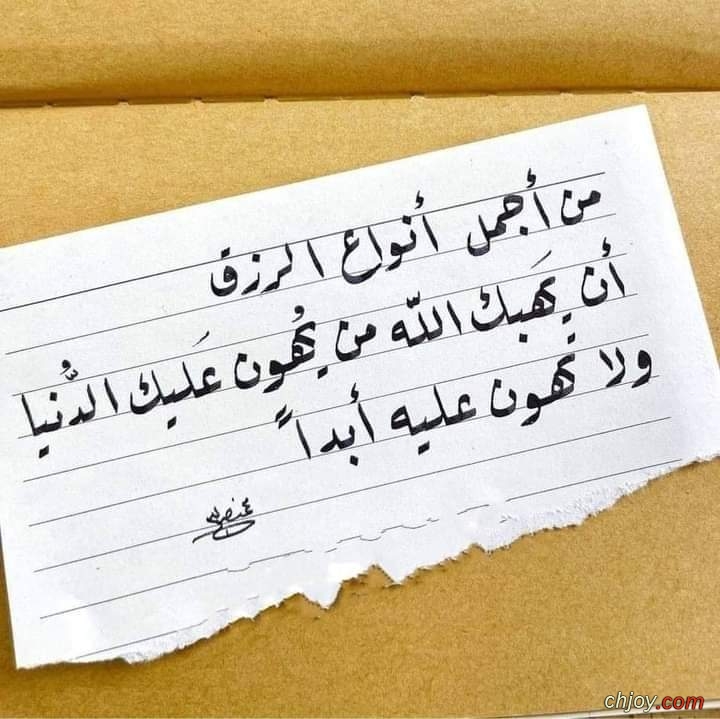 من أجمل أنواع الرزق
أن يَهبك الله من يُهون عَليك الدُّنيا
ولا تهون عليه أبداً
chjoy.com